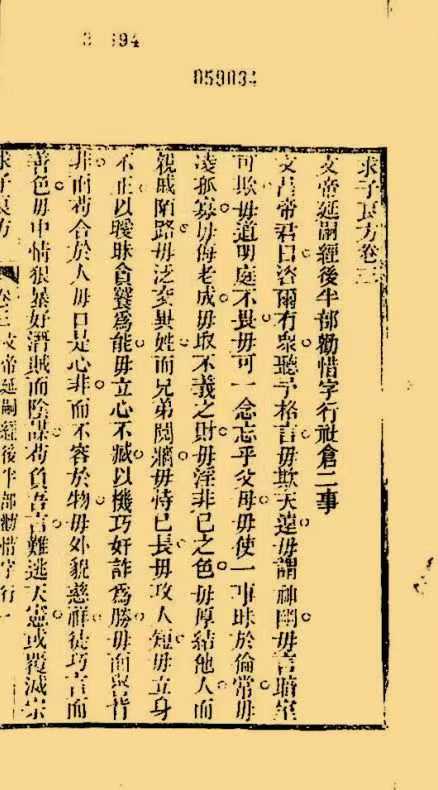 3 94
059034
求子良方卷三
文帝延嗣經後半部勸惜字行社倉二事
文昌帝君曰咨爾有衆聽予格言毋欺天遠毋謂神幽毋言暗室
可欺毋道明庭不畏毋可一念忘乎父母毋使一事昧於倫常毋
凌孤寡毋侮老成毋取不義之財毋淫非己之色毋厚結他人而
親戚陌路毋泛交異姓而兄弟鬩牆毋恃己長毋攻人短毋立身
不正以曖昧貪饕爲能毋立心不臧以機巧奸詐爲勝毋面譽背
非而苟合於人毋口是心非而不容於物毋外貌慈祥徒巧言而
善色毋中情狠暴好潛賊而陰謀苟負吾言難逃天憲或覆滅宗
求子良方 卷三 文帝延嗣經後半部勸惜字行 一